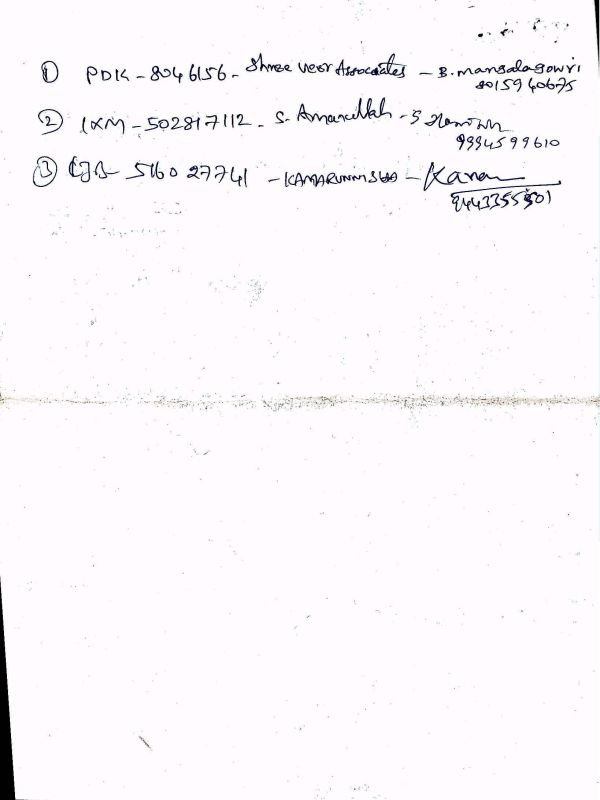 ① PDK - 8046156 - Shree veer Associates - B. mangalagowri
8015940675
② IXM - 502817112 - S. Amanullah - S
9994599610
③ CJB - 516027741 - KAMARUNNISHA -